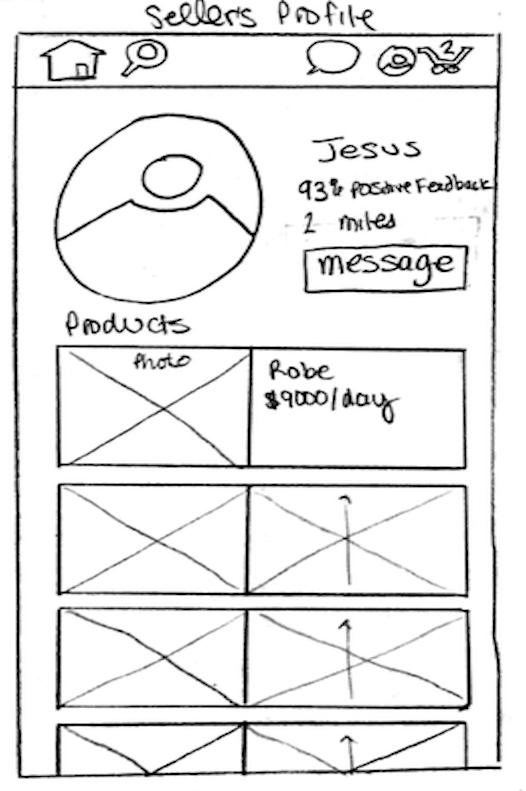 Seller's Profile
2
Jesus
93% positive Feedback
2 miles
message
Products
Photo
Robe
$9000/day